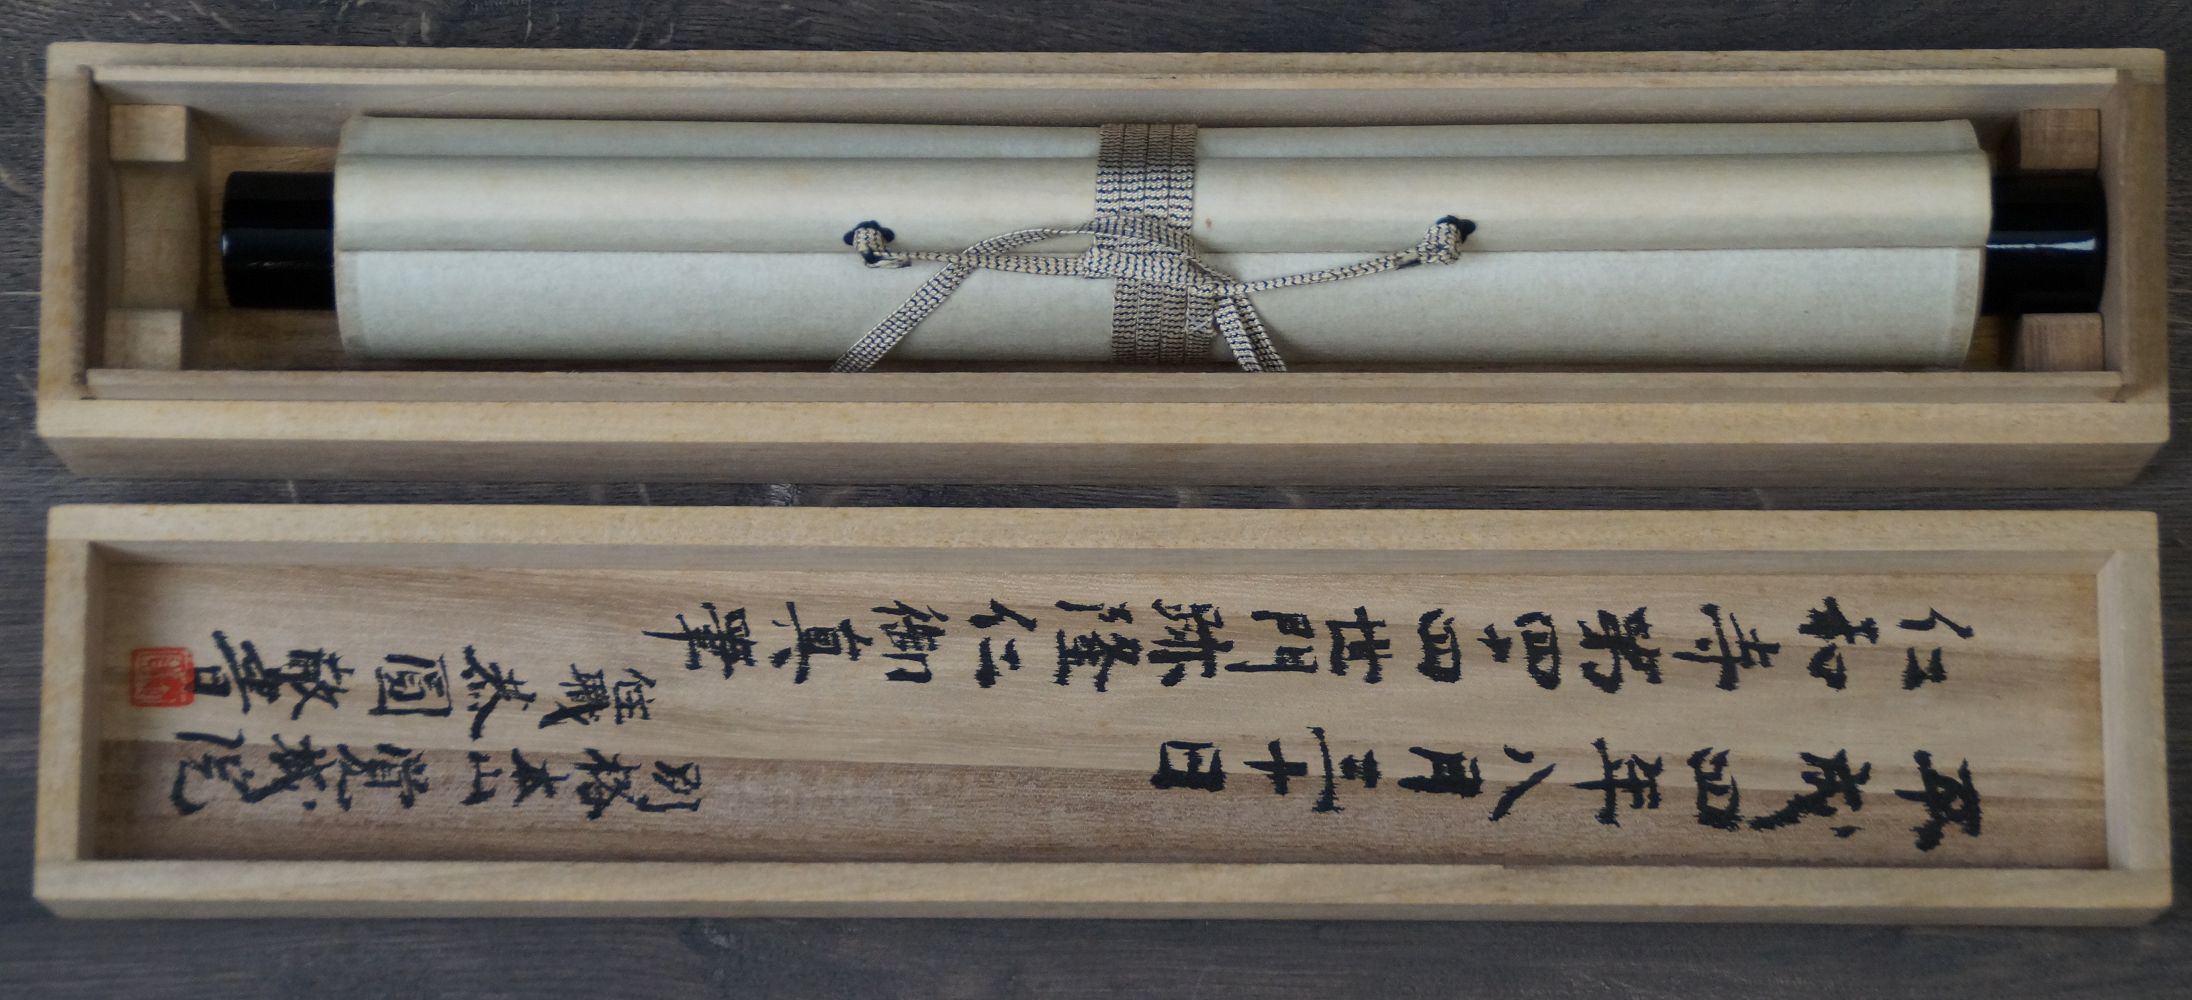 平成四年八月三十日
仁和寺第四十四世門跡隆仁御真筆
別格本山覚城院
住職恭圓敬書